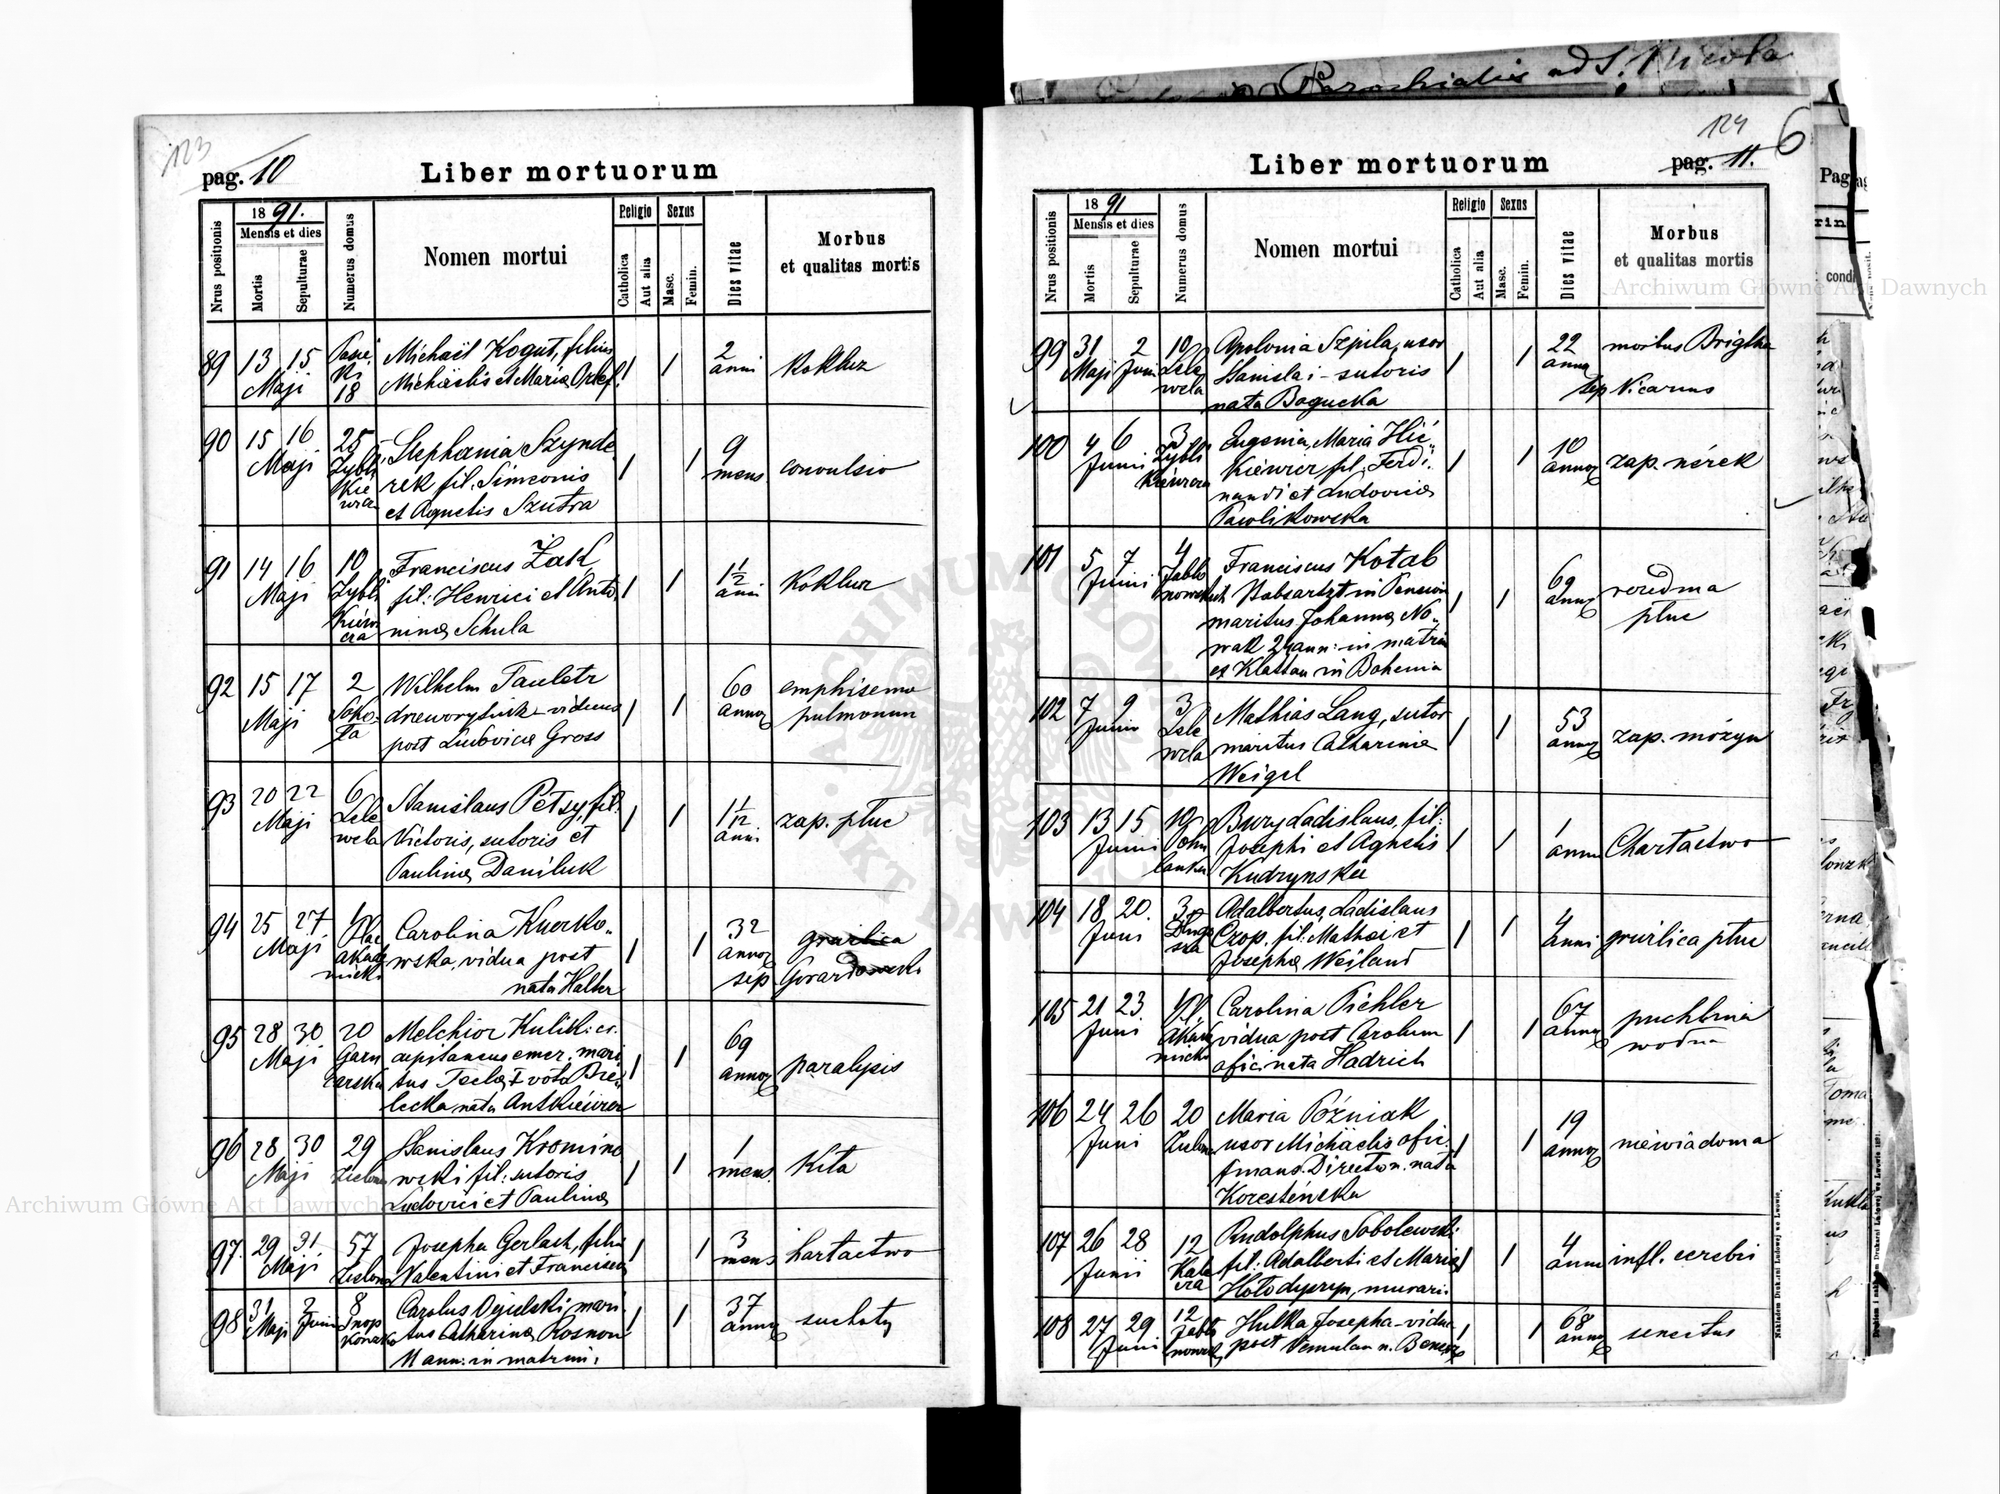 Parochialis ad S. Nicola
123
pag. 10
Liber mortuorum
Nrus positionis
18 91.
Mensis et dies
Mortis
Sepulturae
Numerus domus
Nomen mortui
Religio
Catholica
Aut alia
Sexus
Masc.
Femin.
Dies vitae
Morbus
et qualitas mortis
89 13 15 Maji 18
Michaël Kogut, filius
Michaëlis et Maria
1 1 2 anni Koklusz
90 15 16 Maji 25 Zybli Kie wicza
Stephania Szynde
rek fil. Simeonis
et Agnetis Szutra
1 1 9 mens convulsio
91 14 16 Maji 10 Zybli Kiewi cza
Franciscus Żak
fil: Henrici et Anto
ninæ Schula
1 1 1 1/2 anni Koklusz
92 15 17 Maji 2 Soko ła
Wilhelm
drzeworytnik viduus
post Ludovica Gross
1 1 60 annor emphisema
pulmonum
93 20 22 Maji 6 Lele wela
Stanislaus Petsy, fil.
Victoris, sutoris et
Paulinæ Daniluk
1 1 1 1/12 anni zap. płuc
94 25 27 Maji Plac akade micki
Carolina Kuerko-
wska, vidua post
nata Halter
1 1 32 annor gruźlica
sep
95 28 30 Maji 20 Garn carska
Melchior Kulik: cs.
capitaneus emer. mari
tus Teclæ I voto Bie-
lecka nata Antkiewicz
1 1 69 annor paralysis
96 28 30 Maji 29 Zielona
Stanislaus Kromino
wski fil: sutoris
Ludovici et Paulinæ
1 1 1 mens. Kita
97. 29 31 Maji 57 Zielona
Josepha Gerlach, filia
Valentini et Francisca
1 1 3 mens hartactwo
98 31 Maji 2 Juni 8 Snop Kowska
Carolus mari
tus Catharinæ
ann: in matrim:
1 1 37 annor suchoty
124
6
pag. 11.
Liber mortuorum
Nrus positionis
18 91
Mensis et dies
Mortis
Sepulturae
Numerus domus
Nomen mortui
Religio
Catholica
Aut alia
Sexus
Masc.
Femin.
Dies vitae
Morbus
et qualitas mortis
99 31 Maji 2 Juni 10 Lele wela
Apolonia Szpila, uxor
Stanislai - sutoris
nata Bogucka
1 1 22 anno morbus Brigtha
sep Vicarius
100 4 6 Junii 3 Zybli Kiewicza
Eugenia, Maria
fil. Ferdi-
nandi et Ludovica
Pawlikowska
1 1 10 annor zap. nérek
101 5 7 Junii 4 Jabło nowskich
Franciscus Kotab
Stabsartzt in Pension
maritus Johannæ No-
wak 24 ann: in matrim
ex Klattau in Bohemia
1 1 69 annor rozedma
płuc
102 7 9 Junii 3 Lele wela
Mathias Lang, sutor
maritus Catharinæ
Weigel
1 1 53 annor zap. mózgu
103 13 15 Junii 19
Bury Ladislaus, fil:
Josephi et Agnetis
1 1 1 annu Chartactwo
104 18 20. Juni 30 Długo sza
Adalbertus, Ladislaus
Czop. fil: Mathæi et
Josepha Weiland
1 1 4 anni gruźlica płuc
105 21 23. Juni Akade micki
Carolina Pichler
vidua post Carolum
ofic: nata Hadrich
1 1 67 annor puchlina
wodna
106 24 26 Juni 20 Zielona
Maria Poźniak
uxor Michaelis ofic.
finans. Direction. nata
1 1 19 annor niewiadoma
107 26 28 Junii 12 Kale cza
Rudolphus Sobolewski
fil: Adalberti et Maria
murari.
1 1 4 anni infl. cerebri
108 27 29 Juni 12 Jabło nowsk
Hulka Josepha - vidua
post
1 1 68 annor senectus
Nakładem Drukarni Ludowej we Lwowie.
Archiwum Główne Akt Dawnych
Archiwum Główne Akt Dawnych
ARCHIWUM GŁÓWNE AKT DAWNYCH